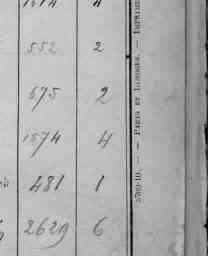 552 2
575 2
1574 4
481 1
2629 6
5709-10. — — PARIS ET LIMOGES. — IMPRIME